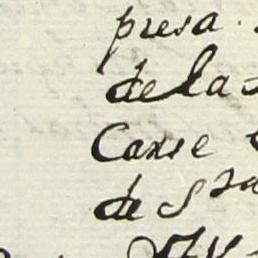 presa.
de la
Caxse
de S.ra